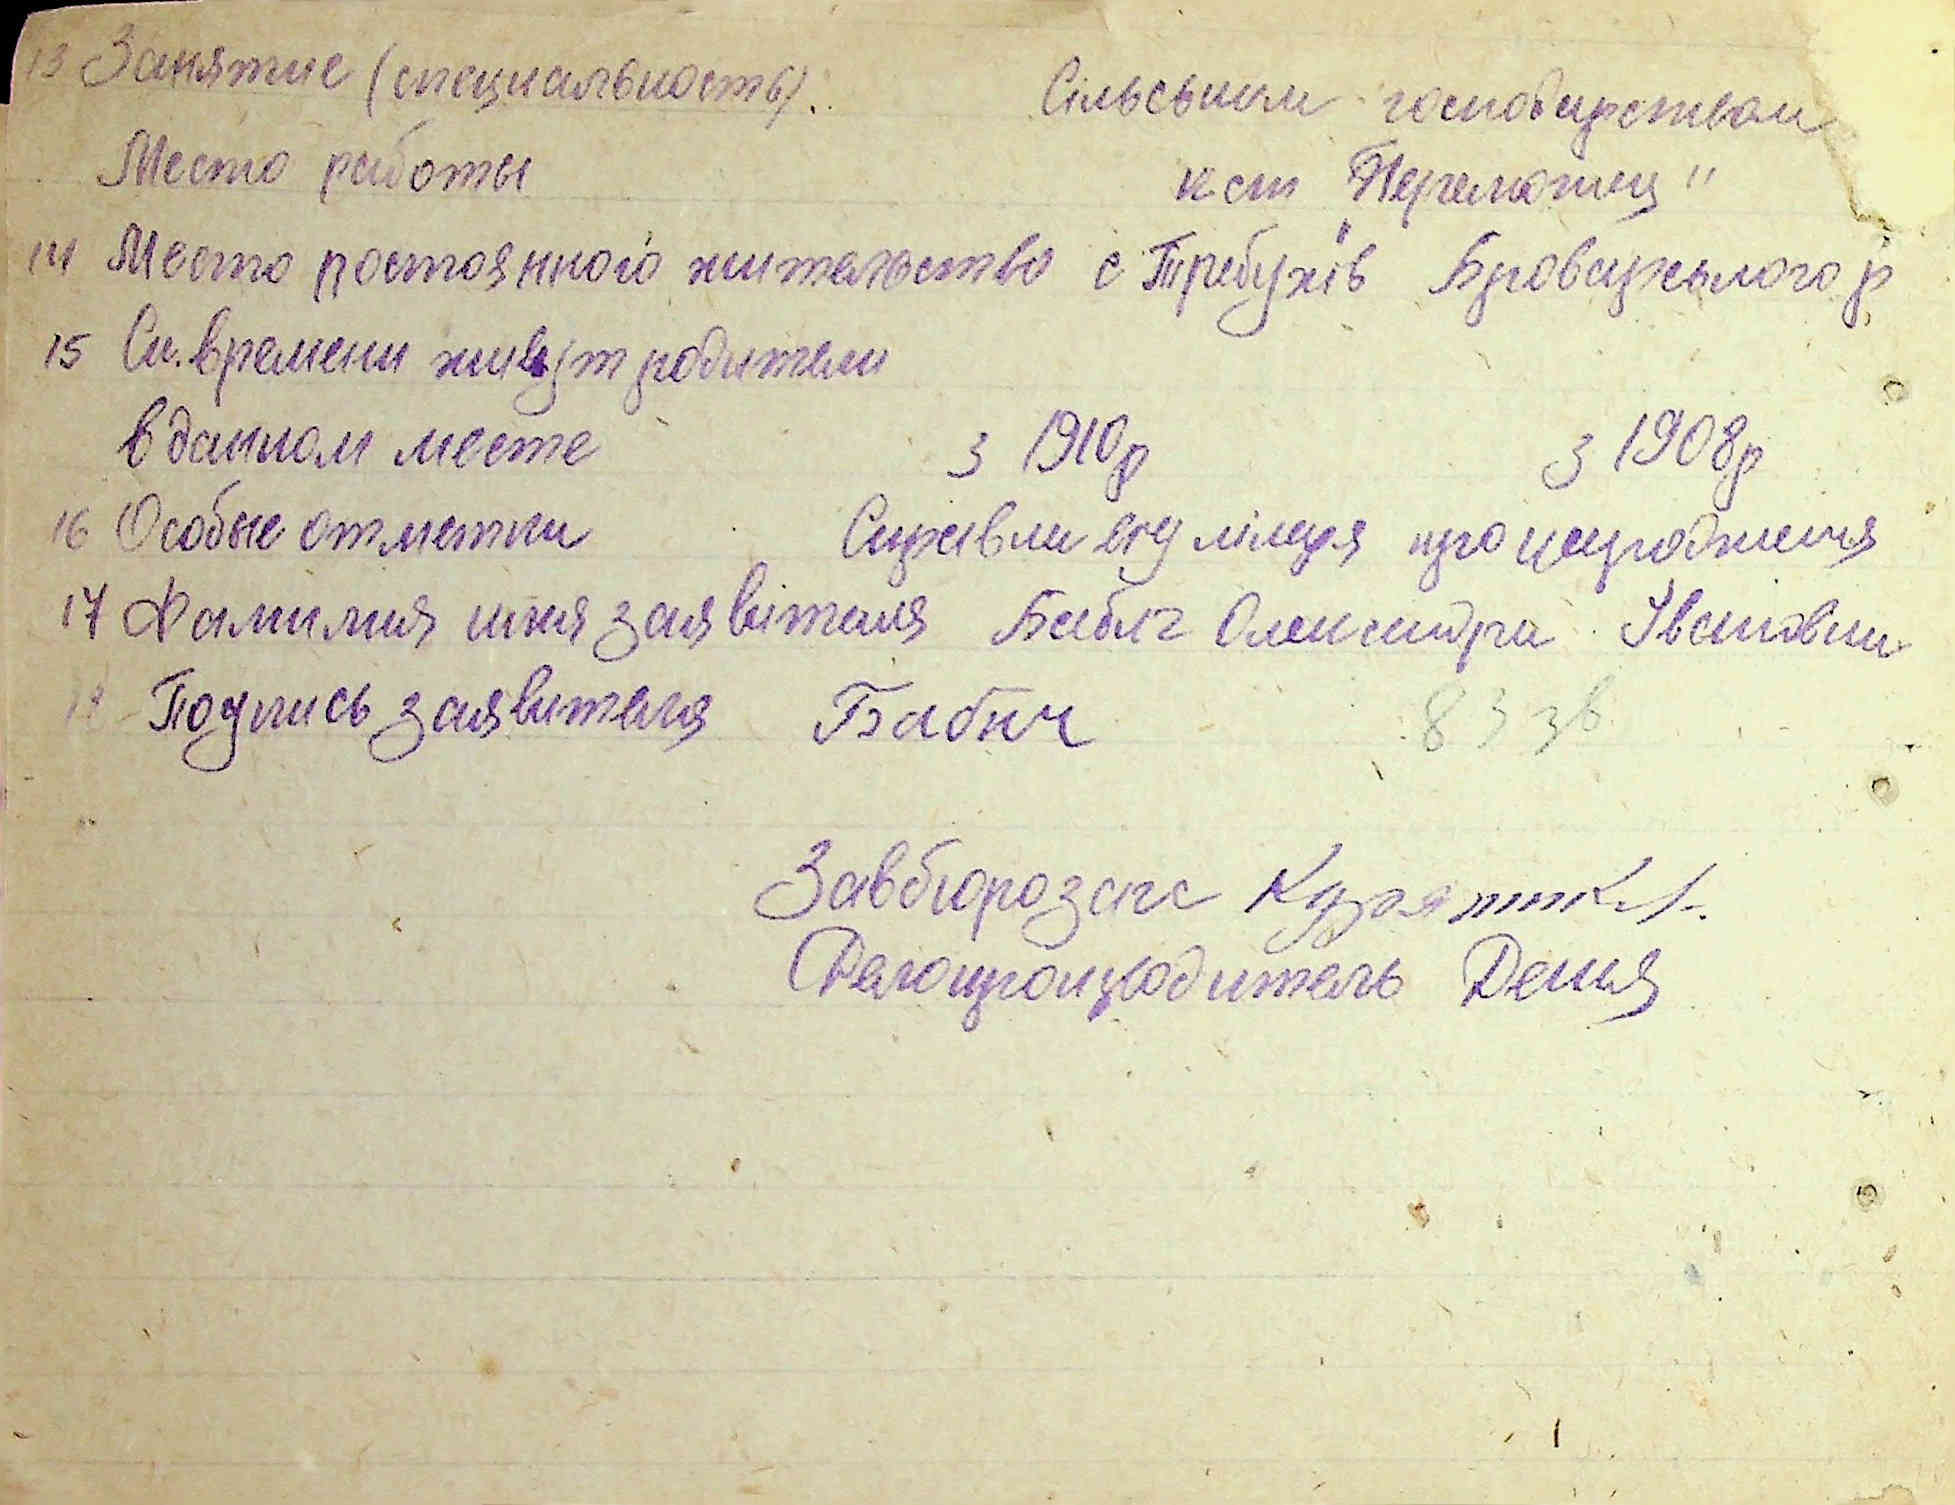 13 Занятие (специальность). Сільським господарством
Место работы к ст "Переможец"
14 Место постоянного жительство с Требухів Броварського р
15 Ск. времени живут родители
в данном месте з 1910р з 1908р
16 Особые отметки Справка від лікаря про народження
17 Фамилия имя заявітеля Бабич Олександра Івановна
18 Подпись заявителя Бабич
83 зв
Завбюрозагс
Делопроизводитель Дения